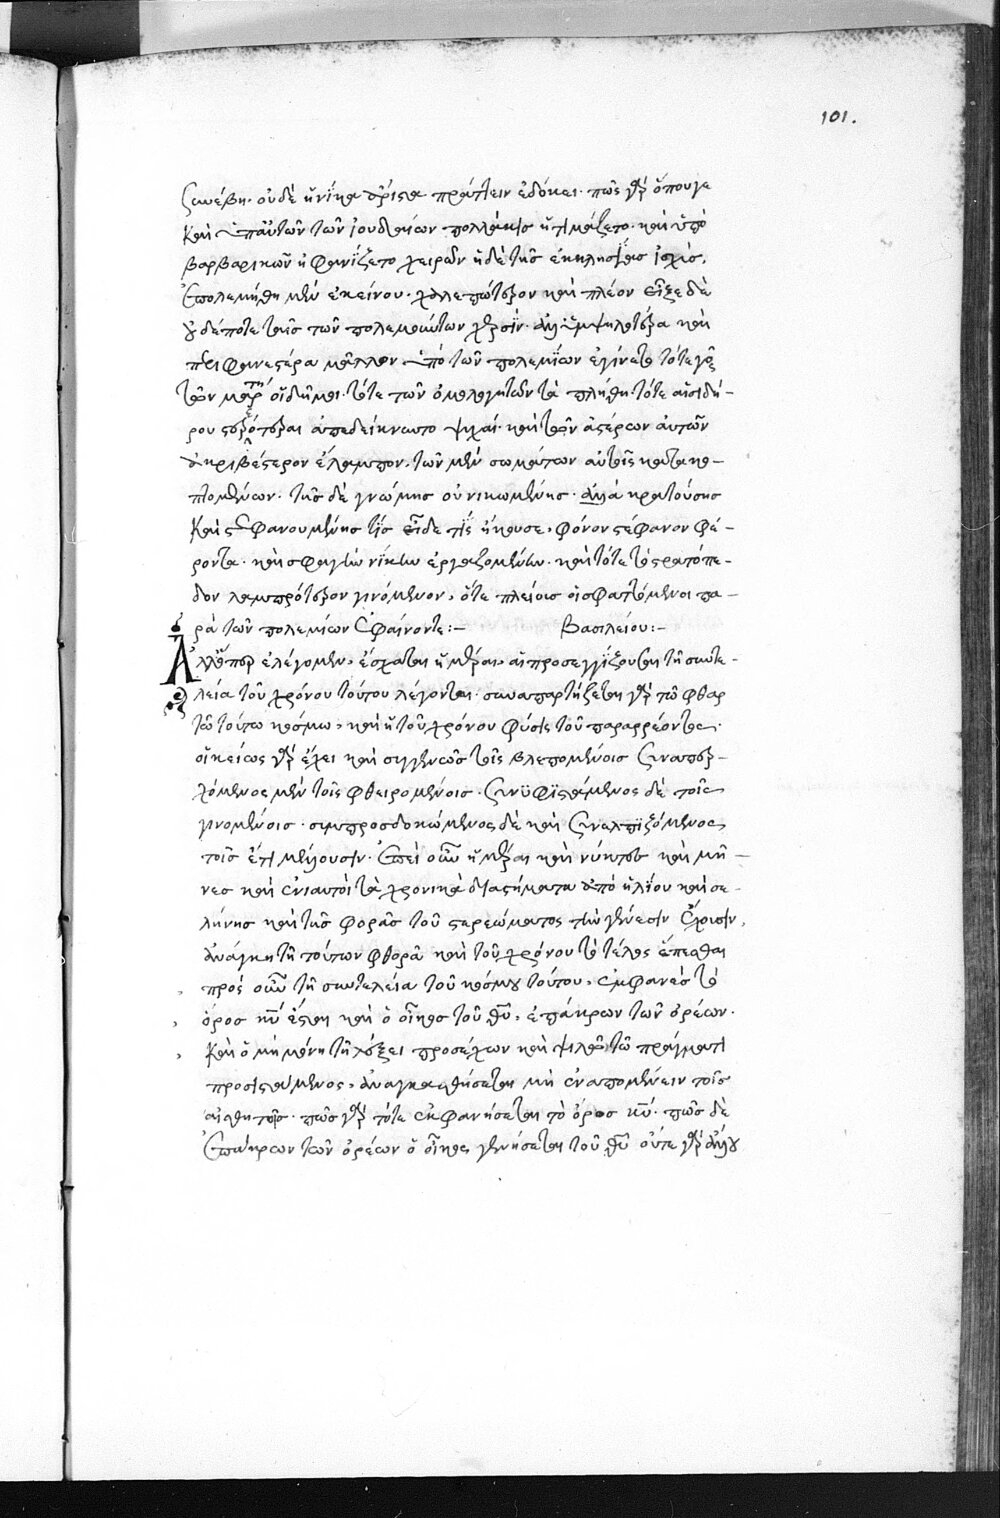 101.
συνέβη. οὐδὲ ἡνίκα ἄριστα πράττειν ἐδόκει. πῶς γὰρ ὅπουγε
καὶ ὑπ' αὐτῶν τῶν ἰουδαίων πολλάκις ἠτιμάζετο. καὶ ὑπὸ
βαρβαρικῶν ἠφανίζετο χειρῶν ἡ δὲ τῆς ἐκκλησίας ἰσχὺς,
ἐπολεμήθη μὲν ἐκείνου. χαλεπώτερον καὶ πλέον εἶξε δὲ
οὐδέποτε τοῖς τῶν πολεμούντων χερσίν. ἀλλ' ὑψηλοτέρα καὶ
περιφανεστέρα μᾶλλον ὑπὸ τῶν πολεμίων ἐγίνετο τότε γὰρ
τῶν μαρτύρων οἱ δῆμοι. τότε τῶν ὁμολογητῶν τὰ πλήθη. τότε αἱ σιδή-
ρου στερρότεραι ἀπεδείκνυντο ψυχαί. καὶ τῶν ἀστέρων αὐτῶν
ἀκριβέστερον ἔλαμπον. τῶν μὲν σωμάτων αὐτοῖς κατακο-
πτομένων. τῆς δὲ γνώμης οὐ νικωμένης. ἀλλὰ κρατούσης
καὶ στεφανουμένης τίς εἶδε τίς ἤκουσε, φόνον στέφανον φέ-
ροντα. καὶ σφαγὴν νίκην ἐργαζομένην. καὶ τότε τὸ στρατόπε-
δον λαμπρότερον γινόμενον, ὅτε πλείους οἱ σφαττόμενοι πα-
ρὰ τῶν πολεμίων ἐφαίνοντο:- Βασιλείου:-
Ἀλλ' ὅπερ ἐλέγομεν, ἔσχαται ἡμέραι, αἱ προσεγγίζουσαι τῇ συντε-
λεία τοῦ χρόνου τούτου λέγονται. συναπαρτίζεται γὰρ τῷ φθαρ
τῷ τούτω κόσμω, καὶ ἡ τοῦ χρόνου φύσις τοῦ παραρρέοντος.
οἰκείως γὰρ ἔχει καὶ συγγενῶς τοῖς βλεπομένοις συναπερ-
χόμενος μὲν τοῖς φθειρομένοις. συνϋφιστάμενος δὲ τοῖς
γινομένοις. συμπροσδοκώμενος δὲ καὶ συνελπιζόμενος
τοῖς ἔτι μέλλουσιν. ἐπεὶ οὖν ἡμέραι καὶ νύκτες καὶ μῆ-
νες καὶ ἐνιαυτοὶ τὰ χρονικὰ διαστήματα ἀπὸ ἡλίου καὶ σε-
λήνης καὶ τῆς φορᾶς τοῦ στερεώματος τὴν γένεσιν ἔχουσιν,
ἀνάγκη τῇ τούτων φθορᾶ καὶ τοῦ χρόνου τὸ τέλος ἕπεσθαι
πρὸς οὖν τῇ συντελεία τοῦ κόσμου τούτου, ἐμφανὲς τὸ
ὄρος κυ ἔσται καὶ ὁ οἶκος τοῦ θυ, ἐπ' ἄκρων τῶν ὀρέων.
καὶ ὁ μὴ μόνη τῇ λέξει προσέχων καὶ ψιλῶ τῷ πράγματι
προσιστάμενος, ἀναγκασθήσεται μὴ ἐναπομένειν τοῖς
αἰσθητοῖς. πῶς γὰρ τότε ἐμφανήσεται τὸ ὄρος κυ. πῶς δὲ
ἐπ' ἄκρων τῶν ὀρέων ὁ οἶκος γενήσεται τοῦ θυ οὔτε γὰρ ἄλλου